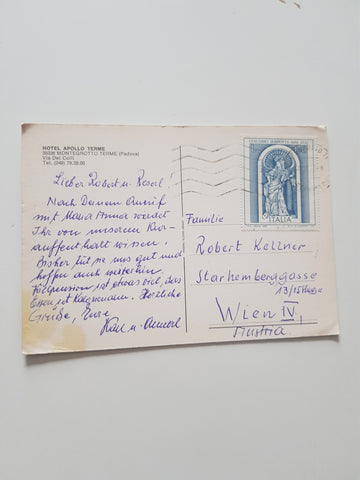 HOTEL APOLLO TERME
35036 MONTEGROTTO TERME (Padova)
Via Dei Colli
Tel. (049) 79.39.00
Lieber Robert u. Reserl!
Nach Deinem Anruf
mit Maria Anna werdet
Ihr von unserem Kur-
aufenthalt wissen.
Bisher tut es uns gut und
hoffen auch weiterhin.
Vollpension ist etwas viel, das
Essen ist Herzliche
Grüße, Eure
Karl u.
ITALIA
Familie
Robert Kellner
Starhemberggasse
Wien IV,
Austria.